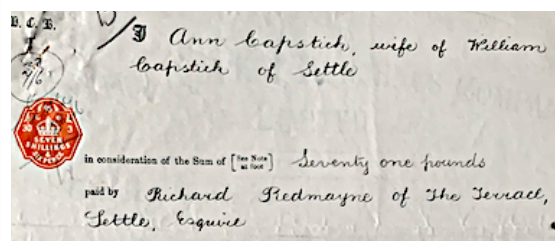 D. C. R.
I Ann Capstick, wife of William
Capstick of Settle
30 3
SEVEN
SHILLINGS
&
SIXPENCE
in consideration of the Sum of [See Note at foot] Seventy one pounds
paid by Richard Redmayne of The Terrace,
Settle, Esquire